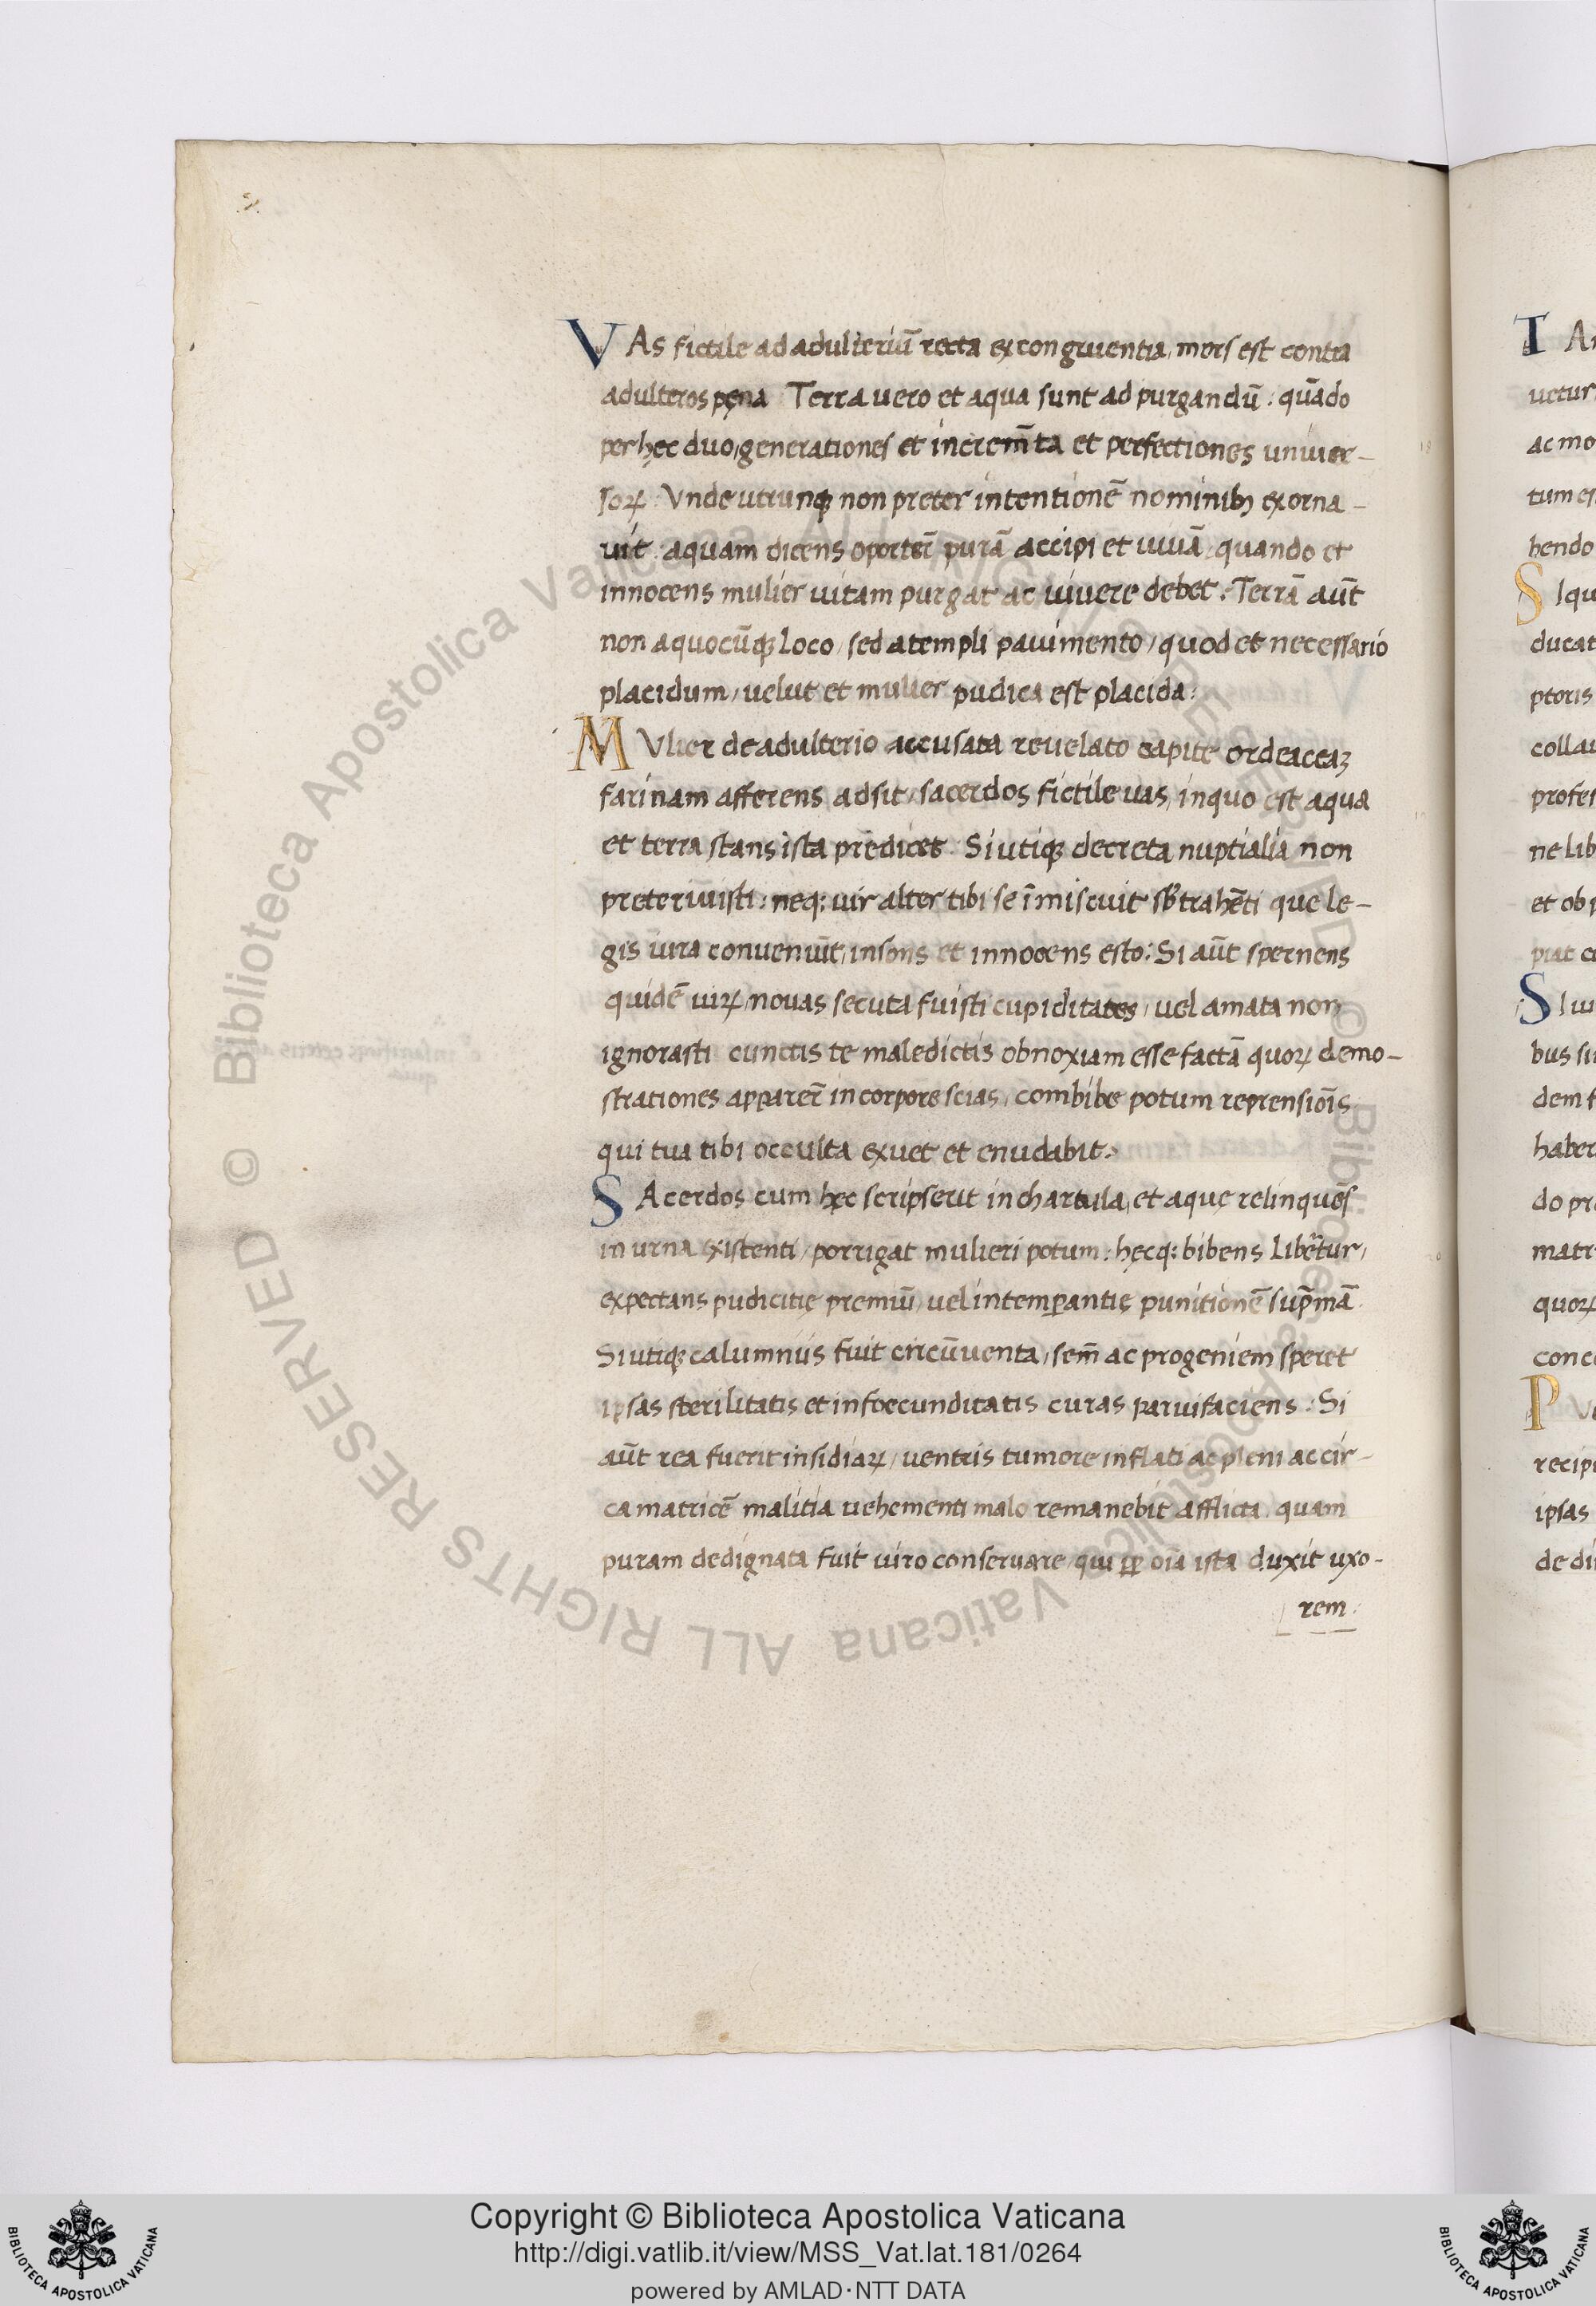 VAs fictile ad adulteriū recta ex congruentia, mors est contra
adulteros pęna Terra uero et aqua sunt ad purgandū : quādo
per hęc duo, generationes et increm̄ta et perfectiones uniuer-
soꝝ. Vnde utrunqꝫ non preter intentionē nominibꝫ exorna-
uit. aquam dicens oporter̄ purā accipi et uiuā. quando et
innocens mulier uitam purgat ac uiuere debet. Terrā aūt
non a quocūqꝫ loco, sed a templi pauimento, quod et necessario
placidum, uelut et mulier pudica est placida.
MVlier de adulterio accusata reuelato capite ordeaceaꝫ
farinam afferens adsit, sacerdos fictile uas, in quo est aqua
et terra stans ista predicet. Si utiqꝫ decreta nuptialia non
preteriuisti: neqꝫ uir alter tibi se īmiscuit sb̄trahēti quę le-
gis iura conueniūt, insons et innocens esto: Si aūt spernens
quidē uiꝝ, nouas secuta fuisti cupiditates, uel amata non
ignorasti cunctis te maledictis obnoxiam esse factā quoꝝ demo-
strationes apparer̄ in corpore scias, combibe potum reprensiōis
qui tua tibi occulta exuet et enudabit.
SAcerdos cum hęc scripserit in chartula, et aquę relinquēs
in urna existenti, porrigat mulieri potum: hęcqꝫ bibens liber̄tur,
expectans pudicitię premiū, uel intemꝑantię punitionē sup̄mā.
Si utiqꝫ calumniis fuit circūuenta, sem̄ ac progeniem speret
ipsas sterilitatis et infoecunditatis curas paruifaciens. Si
aūt rea fuerit insidiaꝝ, uentris tumore inflati ac pleni ac cir-
ca matricē malitia uehementi malo remanebit afflicta. quam
puram dedignata fuit uiro conseruare, qui ꝑꝑ oīa ista duxit uxo-
rem.
T
uetur
ac mo
tum es
hendo
S Iqu
ducat
ptoris
collau
profes
ne lib
et ob p
piat
S I ui
bus si
dem
haber
do pr
matr
quoꝝ
conc
P
recipi
ipsas
de di
© Biblioteca Apostolica Vaticana ALL RIGHTS RESERVED © Biblioteca Apostolica Vaticana ALL RIGHTS RESERVED
Copyright © Biblioteca Apostolica Vaticana
http://digi.vatlib.it/view/MSS_Vat.lat.181/0264
powered by AMLAD·NTT DATA
BIBLIOTECA APOSTOLICA VATICANA
BIBLIOTECA APOSTOLICA VATICANA